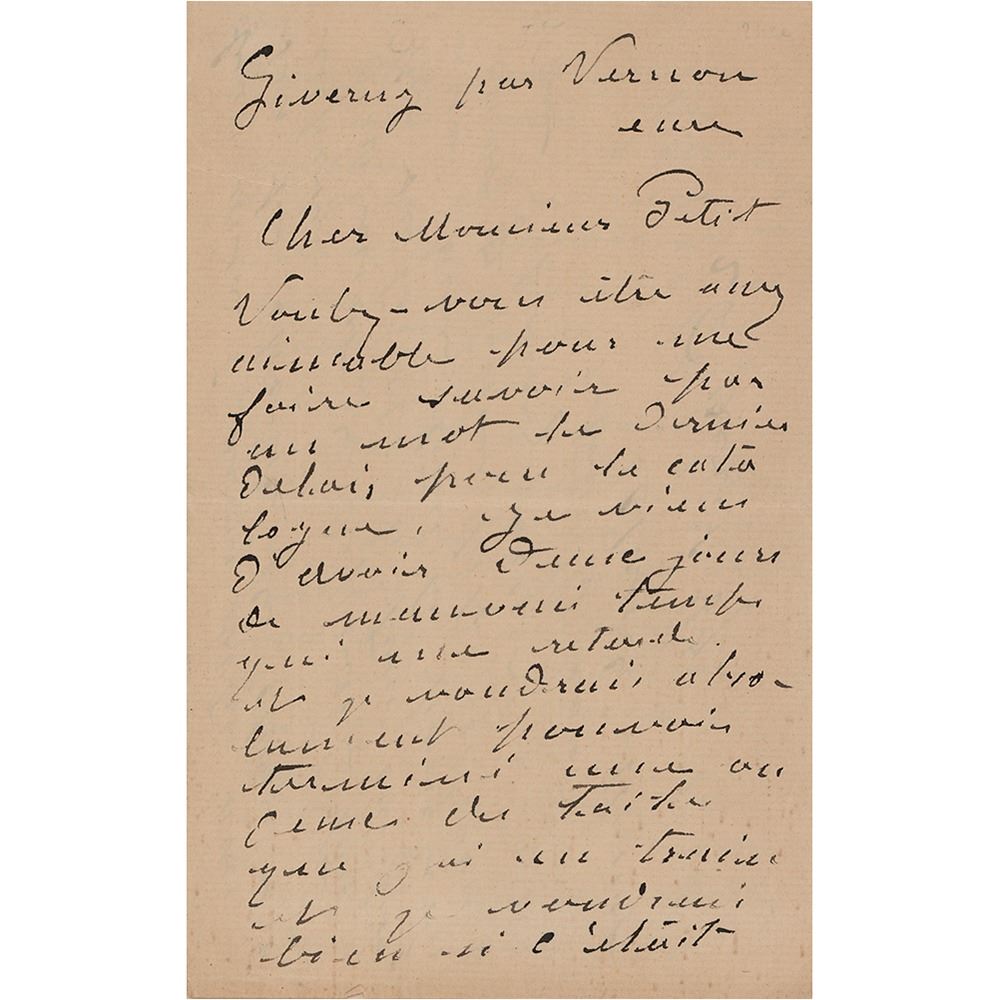 Giverny par Vernon
eure
Cher Monsieur Petit
Voulez-vous être assez
aimable pour me
faire savoir par
un mot le dernier
delai, pour le cata
logue, Je viens
d'avoir deux jours
de mauvais temps
qui me retarde.
et je voudrais abso-
lument pouvoir
terminé une ou
deux des toiles
que j'ai en train
et je voudrais
bien si c'était